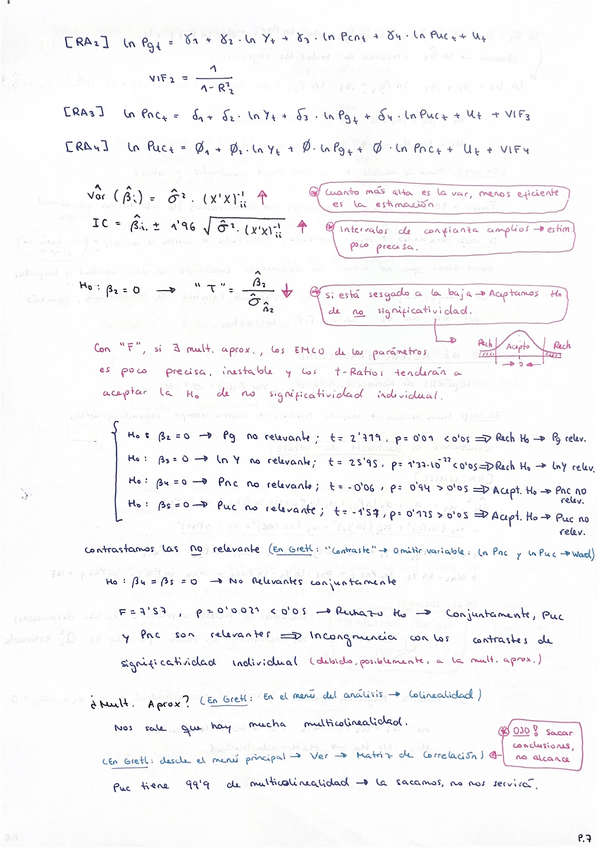 [RA2] ln Pgt = γ1 + γ2 · ln Yt + γ3 · ln Pcnt + γ4 · ln Puct + Ut
VIF2 = 1 / 1 - R²2
[RA3] ln Pnct = δ1 + δ2 · ln Yt + δ3 · ln Pgt + δ4 · ln Puct + Ut + VIF3
[RA4] ln Puct = Ø1 + Ø2 · ln Yt + Ø · ln Pgt + Ø · ln Pnct + Ut + VIF4
Vâr (β̂i) = σ̂² · (X'X)⁻¹ii ↑
cuanto más alta es la var, menos eficiente
es la estimación
IC = β̂i ± 1'96 √σ̂² · (X'X)⁻¹ii ↑
Intervalos de confianza amplios → estim
poco precisa.
H0: β2 = 0 → "T" = β̂2 / σ̂β̂2 ↓
si está sesgado a la baja → Aceptamos H0
de no significatividad.
Rech Acepto Rech
0
Con "F", si ∃ mult. aprox., los EMCO de los parámetros
es poco precisa, inestable y los t-Ratios tenderán a
aceptar la H0 de no significatividad individual.
H0: β2 = 0 → Pg no relevante; t = 2'779, p = 0'01 < 0'05 ⇒ Rech H0 → Pg relev.
H0: β3 = 0 → ln Y no relevante; t = 25'95, p = 1'37·10⁻²² < 0'05 ⇒ Rech H0 → ln Y relev.
H0: β4 = 0 → Pnc no relevante; t = -0'06, p = 0'94 > 0'05 ⇒ Acept. H0 → Pnc no
relev.
H0: β5 = 0 → Puc no relevante; t = -1'57, p = 0'125 > 0'05 ⇒ Acept. H0 → Puc no
relev.
contrastamos las no relevante (En Gretl: "Contraste" → Omitir variable: ln Pnc y ln Puc → Wald)
H0: β4 = β5 = 0 → No Relevantes conjuntamente
F = 7'57, p = 0'0021 < 0'05 → Rechazo H0 → Conjuntamente, Puc
y Pnc son relevantes ⇒ Incongruencia con los contrastes de
significatividad individual (debido, posiblemente, a la mult. aprox.)
¿Mult. Aprox? (En Gretl: En el menú del análisis → Colinealidad)
Nos sale que hay mucha multicolinealidad.
OJO! Sacar
conclusiones,
no alcance
(En Gretl: desde el menú principal → Ver → Matriz de Correlación)
Puc tiene 99'9 de multicolinealidad → la sacamos, no nos servirá.
P.7